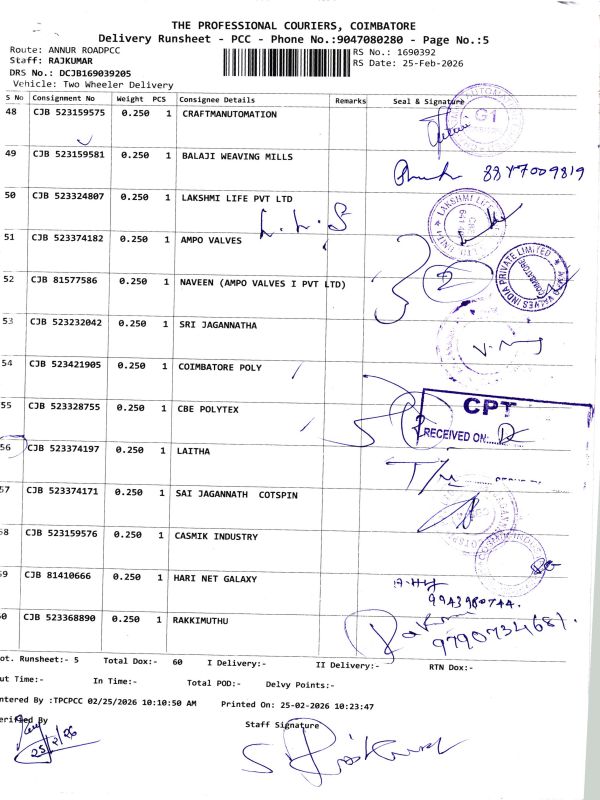 THE PROFESSIONAL COURIERS, COIMBATORE
Delivery Runsheet - PCC - Phone No.:9047080280 - Page No.:5
Route: ANNUR ROADPCC
RS No.: 1690392
Staff: RAJKUMAR
RS Date: 25-Feb-2026
DRS No.: DCJB169039205
Vehicle: Two Wheeler Delivery
S No Consignment No Weight PCS Consignee Details Remarks Seal & Signature
48 CJB 523159575 0.250 1 CRAFTMANUTOMATION
G1
49 CJB 523159581 0.250 1 BALAJI WEAVING MILLS
8847009819
50 CJB 523324807 0.250 1 LAKSHMI LIFE PVT LTD
L.L.S
LAKSHMI LIFE
51 CJB 523374182 0.250 1 AMPO VALVES
2
AMPO VALVES INDIA PRIVATE LIMITED
COIMBATORE
52 CJB 81577586 0.250 1 NAVEEN (AMPO VALVES I PVT LTD)
53 CJB 523232042 0.250 1 SRI JAGANNATHA
54 CJB 523421905 0.250 1 COIMBATORE POLY
CPT
RECEIVED ON:
55 CJB 523328755 0.250 1 CBE POLYTEX
56 CJB 523374197 0.250 1 LAITHA
57 CJB 523374171 0.250 1 SAI JAGANNATH COTSPIN
58 CJB 523159576 0.250 1 CASMIK INDUSTRY
59 CJB 81410666 0.250 1 HARI NET GALAXY
9943980744.
60 CJB 523368890 0.250 1 RAKKIMUTHU
9790734681.
ot. Runsheet:- 5 Total Dox:- 60 I Delivery:- II Delivery:- RTN Dox:-
ut Time:- In Time:- Total POD:- Delvy Points:-
ntered By :TPCPCC 02/25/2026 10:10:50 AM Printed On: 25-02-2026 10:23:47
erified By
Staff Signature
25/2/26